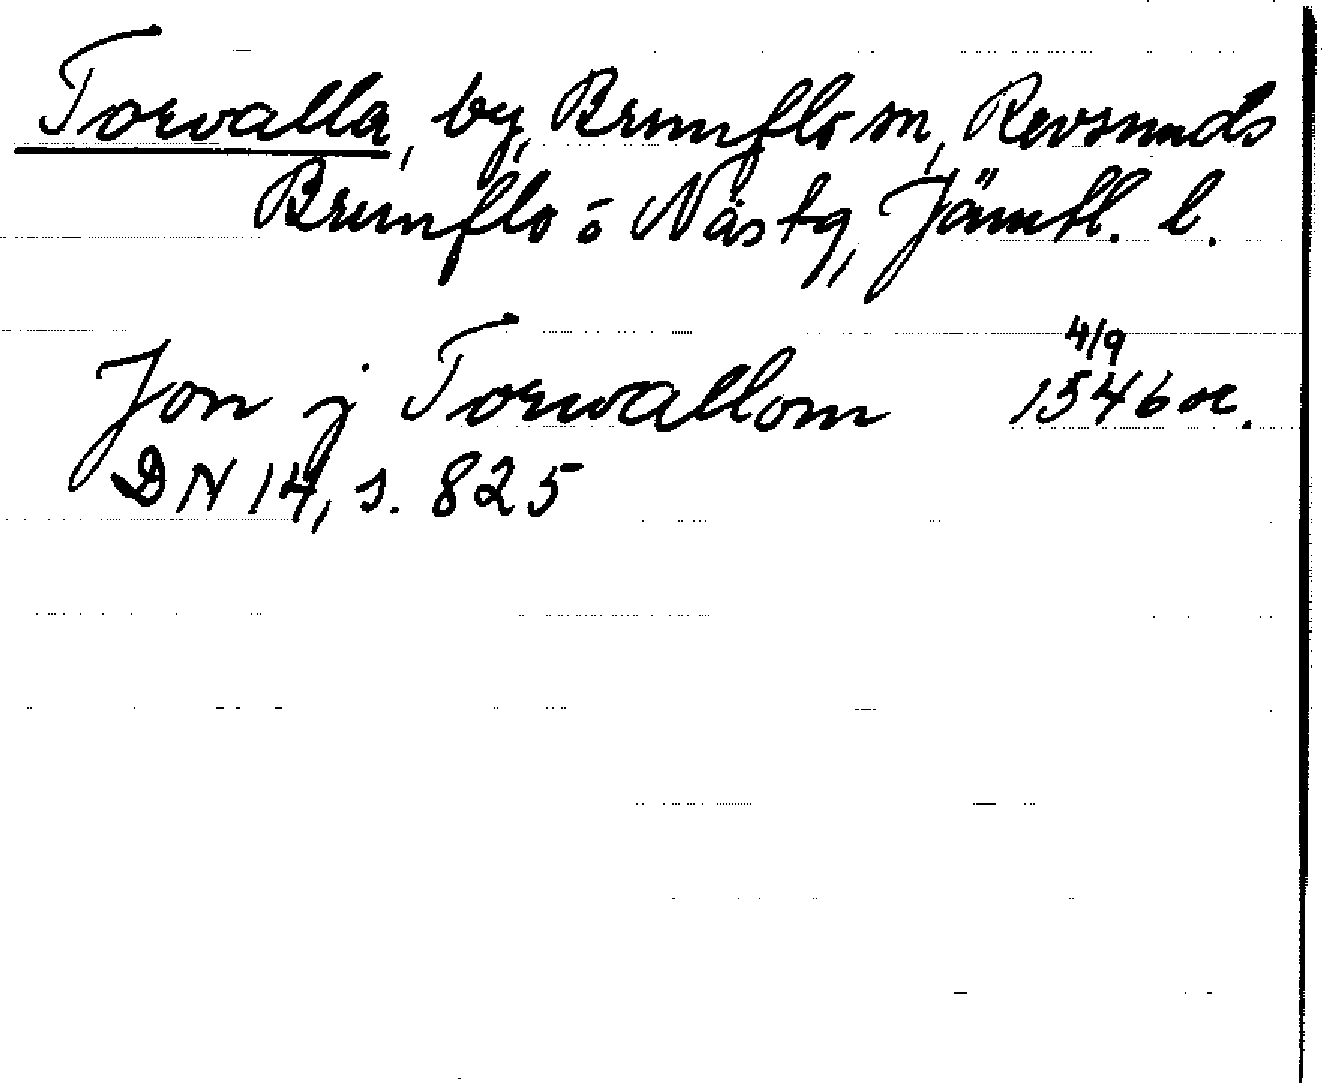 Torvalla, by, Brunflo sn, Revsunds
Brunflo o Näs tg, Jämtl. l.
4/9
Jon j Torwallom 1546 or.
DN 14, s. 825